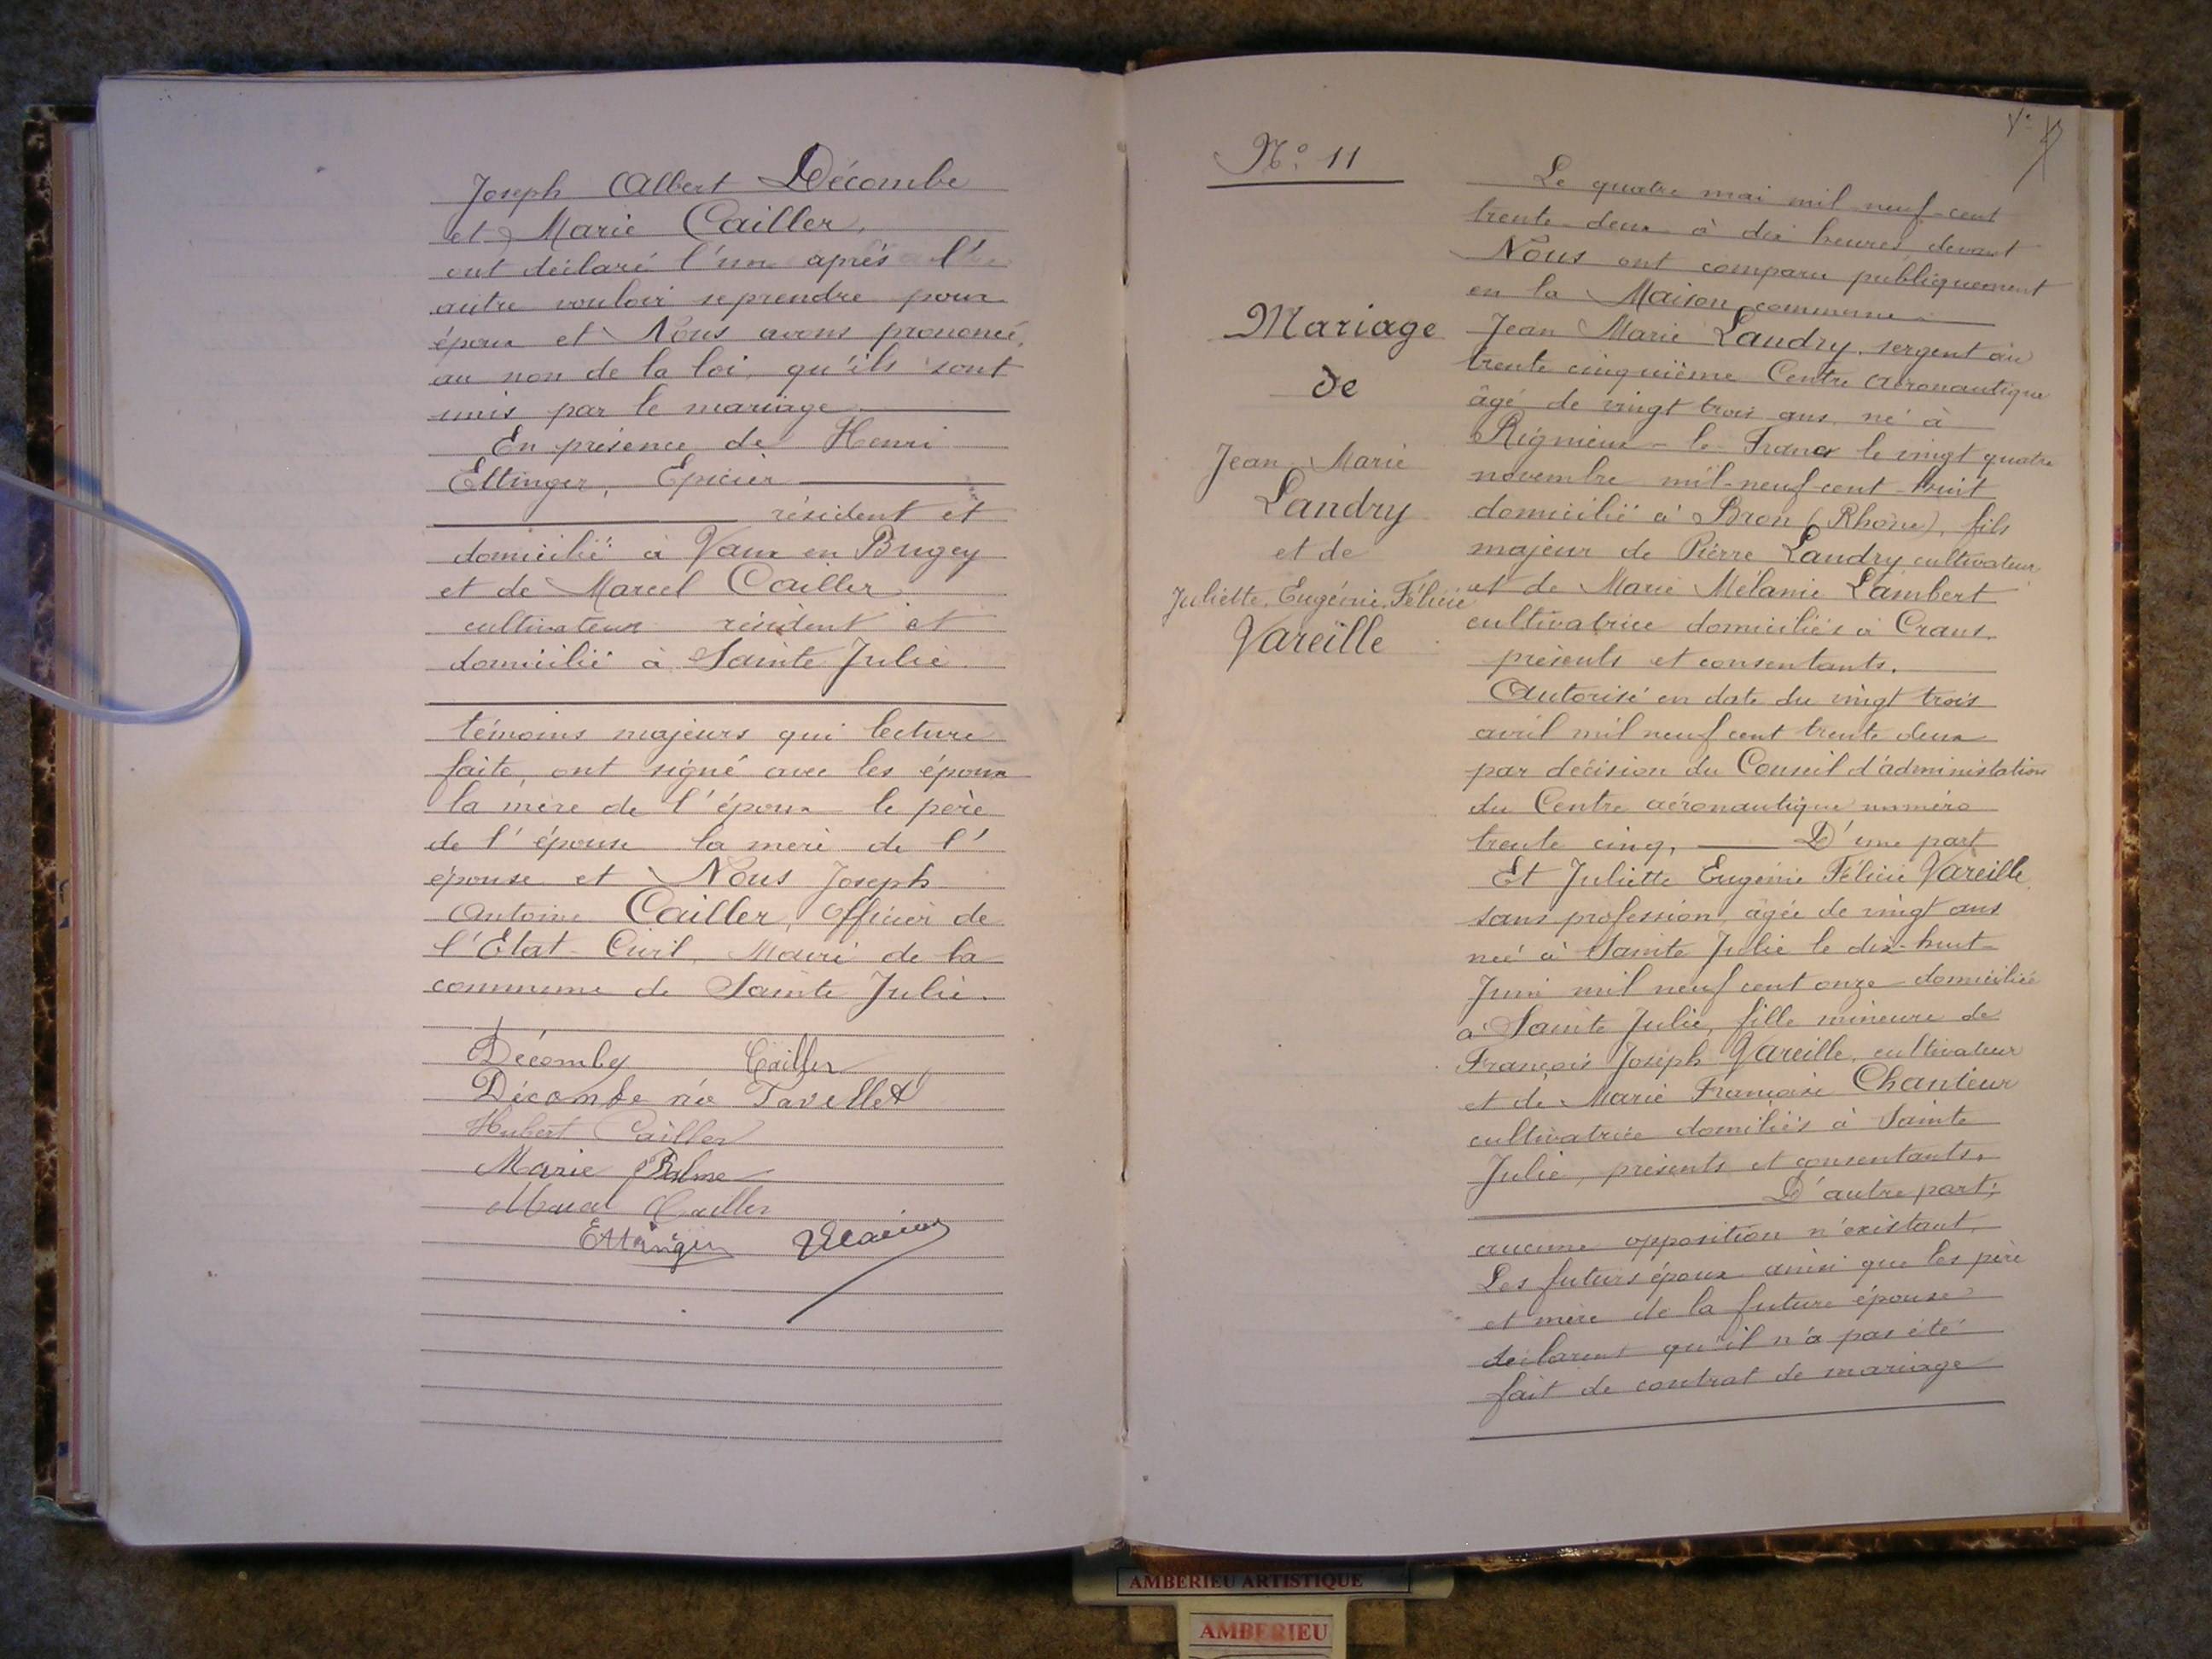 Joseph Albert Décombe
et Marie Cailler,
ont déclaré l'un après l'
autre vouloir se prendre pour
époux et Nous avons prononcé,
au nom de la loi, qu'ils sont
unis par le mariage.
En présence de Henri
Ettinger, Epicier
résident et
domicilié à Vaux en Bugey
et de Marcel Cailler
cultivateur résident et
domicilié à Sainte Julie.
témoins majeurs qui lecture
faite, ont signé avec les époux
la mère de l'époux le père
de l'épouse la mère de l'
épouse et Nous Joseph
Antoine Cailler, Officier de
l'Etat-Civil, Maire de la
commune de Sainte Julie.
Décombe Cailler
Décombe née Tavellet
Hubert Cailler
Marie Balme
Marcel Cailler
Ettinger
N° 11
Mariage
de
Jean Marie
Landry
et de
Juliette, Eugénie, Félicie
Vareille
Le quatre mai mil-neuf-cent
trente-deux à dix heures, devant
Nous ont comparu publiquement
en la Maison commune
Jean Marie Landry, sergent au
trente cinquième Centre Aéronautique
âgé de vingt trois ans, né à
Rignieux-le-Franc le vingt quatre
novembre mil-neuf-cent-huit
domicilié à Bron (Rhône), fils
majeur de Pierre Landry cultivateur
et de Marie Mélanie Lambert
cultivatrice domiciliés à Crans
présents et consentants.
Autorisé en date du vingt trois
avril mil neuf cent trente deux
par décision du Conseil d'administation
du Centre aéronautique numéro
trente cinq, D'une part
Et Juliette Eugénie Félicie Vareille
sans profession, âgée de vingt ans
née à Sainte Julie le dix-huit
Juin mil neuf cent onze domiciliée
à Sainte Julie, fille mineure de
François Joseph Vareille, cultivateur
et de Marie Françoise Chanteur
cultivatrice domiliés à Sainte
Julie, présents et consentants.
D'autre part;
aucune opposition n'existant.
Les futurs époux ainsi que les père
et mère de la future épouse
déclarent qu'il n'a pas été
fait de contrat de mariage
AMBERIEU ARTISTIQUE
AMBERIEU